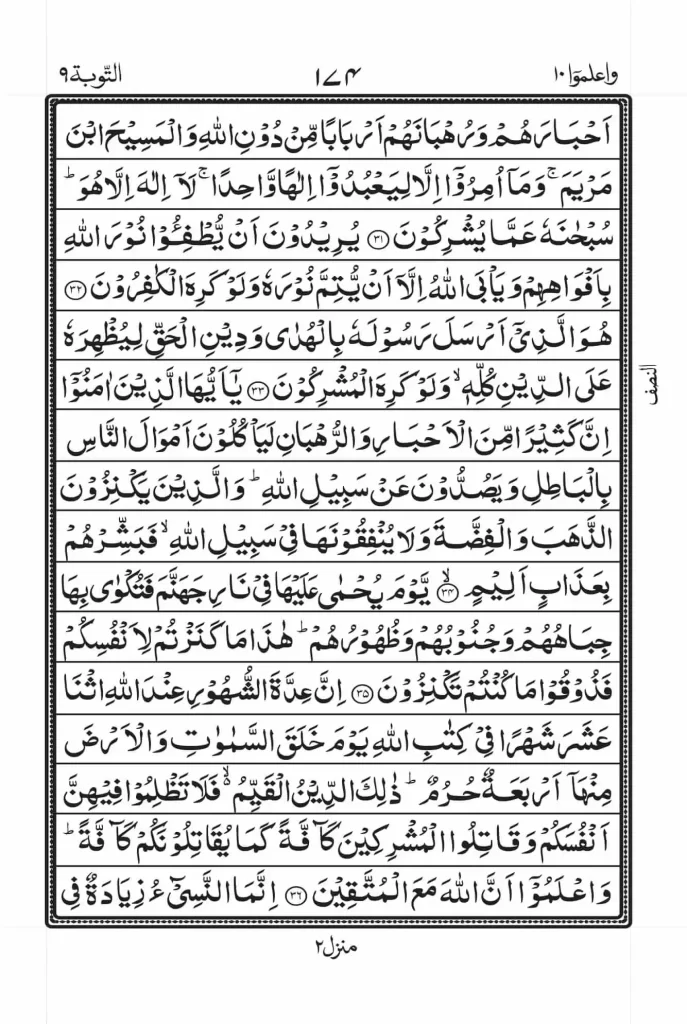 واعلموٓا ١٠
١٧٤
التّوبة ٩
اَحْبَارَهُمْ وَرُهْبَانَهُمْ اَرْبَابًا مِّنْ دُوْنِ اللّٰهِ وَالْمَسِيْحَ ابْنَ
مَرْيَمَ ۚ وَمَآ اُمِرُوْٓا اِلَّا لِيَعْبُدُوْٓا اِلٰهًا وَّاحِدًا ۚ لَآ اِلٰهَ اِلَّا هُوَ ؕ
سُبْحٰنَهٗ عَمَّا يُشْرِكُوْنَ ﴿۳۱﴾ يُرِيْدُوْنَ اَنْ يُّطْفِـُٔوْا نُوْرَ اللّٰهِ
بِاَفْوَاهِهِمْ وَيَاْبَى اللّٰهُ اِلَّآ اَنْ يُّتِمَّ نُوْرَهٗ وَلَوْ كَرِهَ الْكٰفِرُوْنَ ﴿۳۲﴾
هُوَ الَّذِيْٓ اَرْسَلَ رَسُوْلَهٗ بِالْهُدٰى وَدِيْنِ الْحَقِّ لِيُظْهِرَهٗ
عَلَى الدِّيْنِ كُلِّهٖ ۙ وَلَوْ كَرِهَ الْمُشْرِكُوْنَ ﴿۳۳﴾ يٰٓاَيُّهَا الَّذِيْنَ اٰمَنُوْٓا
اِنَّ كَثِيْرًا مِّنَ الْاَحْبَارِ وَالرُّهْبَانِ لَيَاْكُلُوْنَ اَمْوَالَ النَّاسِ
بِالْبَاطِلِ وَيَصُدُّوْنَ عَنْ سَبِيْلِ اللّٰهِ ؕ وَالَّذِيْنَ يَكْنِزُوْنَ
الذَّهَبَ وَالْفِضَّةَ وَلَا يُنْفِقُوْنَهَا فِيْ سَبِيْلِ اللّٰهِ ۙ فَبَشِّرْهُمْ
بِعَذَابٍ اَلِيْمٍ ﴿۳۴﴾ۙ يَّوْمَ يُحْمٰى عَلَيْهَا فِيْ نَارِ جَهَنَّمَ فَتُكْوٰى بِهَا
جِبَاهُهُمْ وَجُنُوْبُهُمْ وَظُهُوْرُهُمْ ؕ هٰذَا مَا كَنَزْتُمْ لِاَنْفُسِكُمْ
فَذُوْقُوْا مَا كُنْتُمْ تَكْنِزُوْنَ ﴿۳۵﴾ اِنَّ عِدَّةَ الشُّهُوْرِ عِنْدَ اللّٰهِ اثْنَا
عَشَرَ شَهْرًا فِيْ كِتٰبِ اللّٰهِ يَوْمَ خَلَقَ السَّمٰوٰتِ وَالْاَرْضَ
مِنْهَآ اَرْبَعَةٌ حُرُمٌ ؕ ذٰلِكَ الدِّيْنُ الْقَيِّمُ ۙ۬ فَلَا تَظْلِمُوْا فِيْهِنَّ
اَنْفُسَكُمْ وَقَاتِلُوا الْمُشْرِكِيْنَ كَآفَّةً كَمَا يُقَاتِلُوْنَكُمْ كَآفَّةً ؕ
وَاعْلَمُوْٓا اَنَّ اللّٰهَ مَعَ الْمُتَّقِيْنَ ﴿۳۶﴾ اِنَّمَا النَّسِيْٓءُ زِيَادَةٌ فِي
النصف
منزل ٢